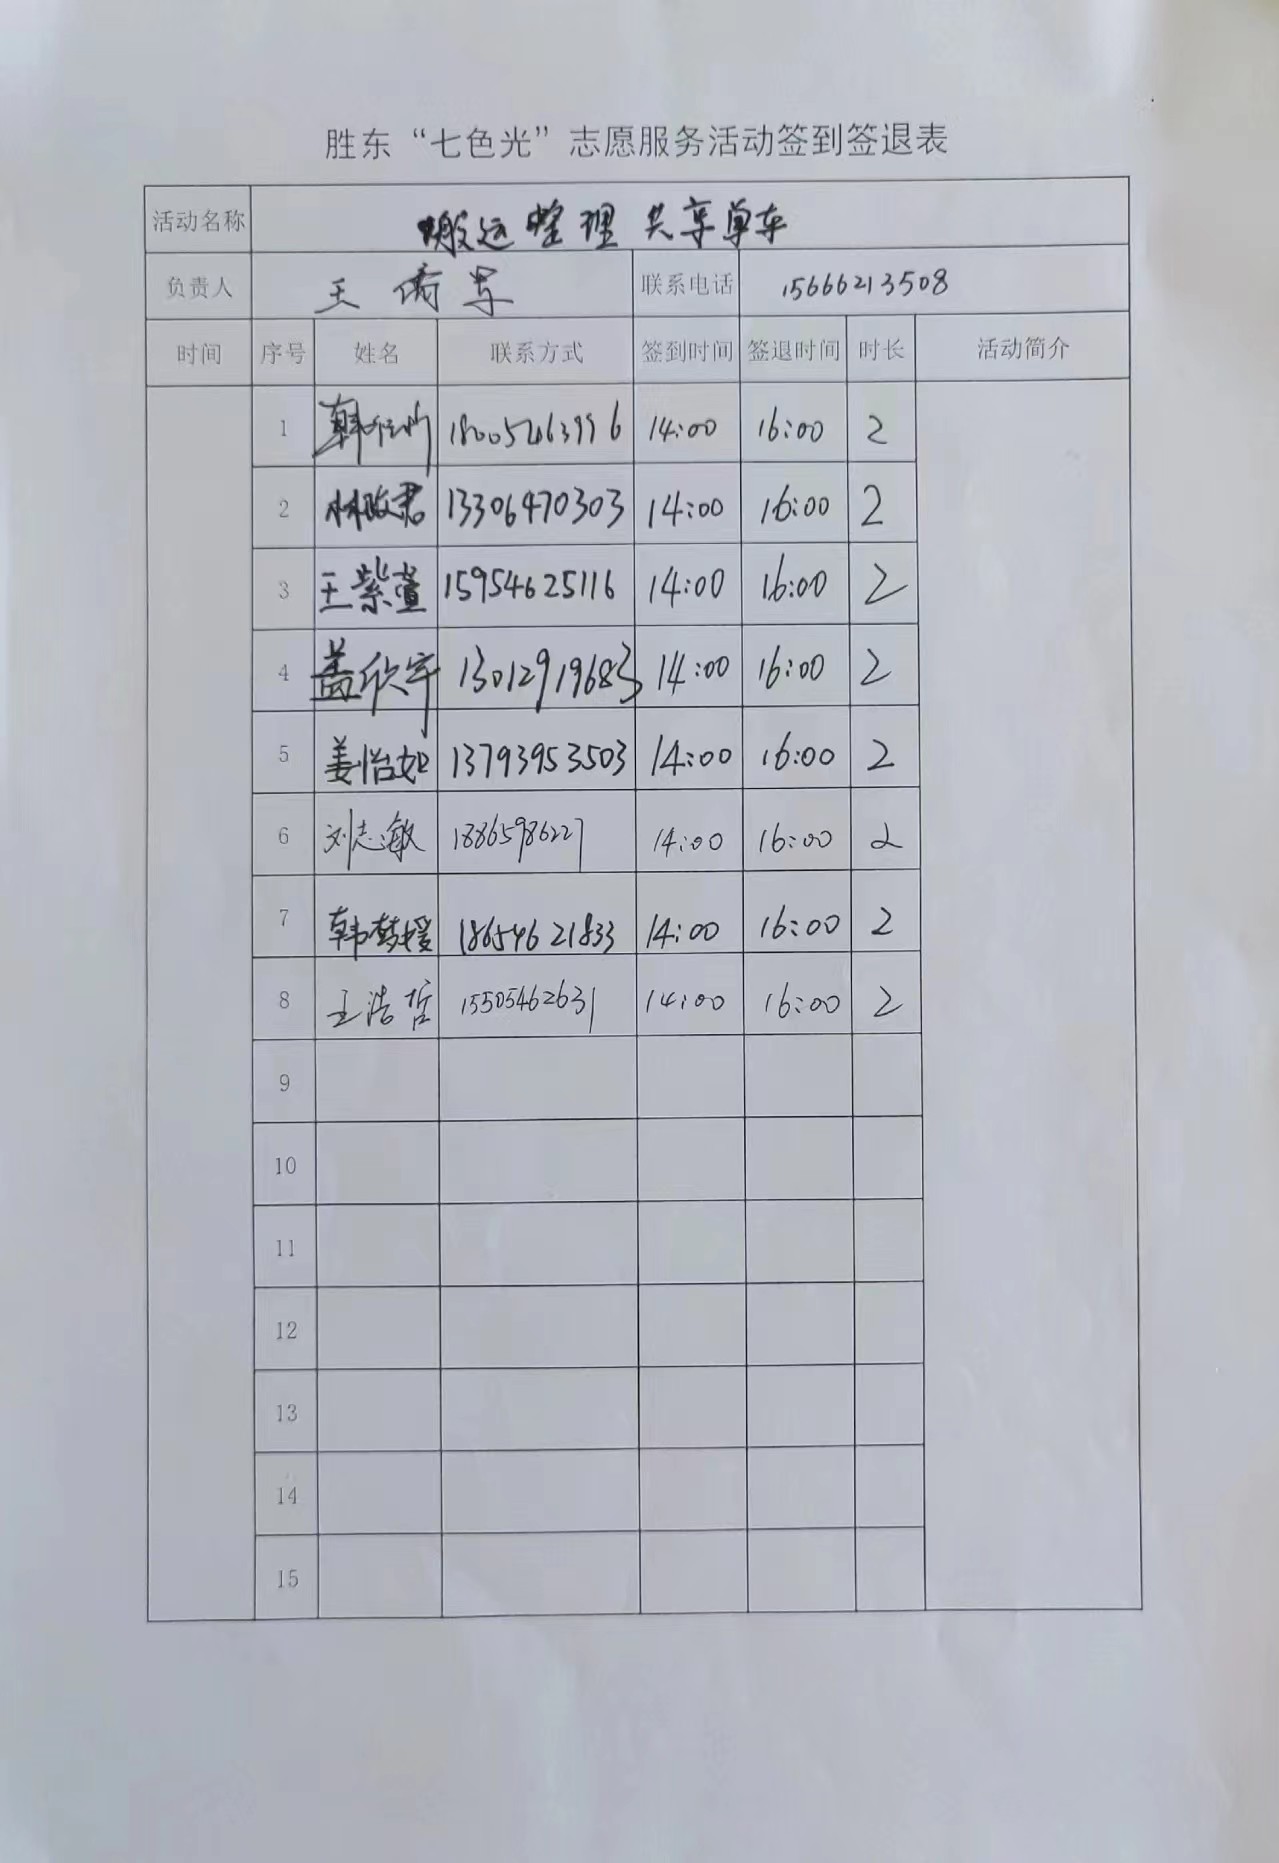 胜东“七色光”志愿服务活动签到签退表
活动名称 搬运整理共享单车
负责人 王 联系电话 15666213508
时间 序号 姓名 联系方式 签到时间 签退时间 时长 活动简介
1 韩 14:00 16:00 2
2 林政君 13306470303 14:00 16:00 2
3 王紫萱 15954625116 14:00 16:00 2
4 盖欣宇 13012919683 14:00 16:00 2
5 姜怡如 13793953503 14:00 16:00 2
6 刘志敏 18865986227 14:00 16:00 2
7 韩梦媛 18654621833 14:00 16:00 2
8 王浩哲 15505462631 14:00 16:00 2
9
10
11
12
13
14
15